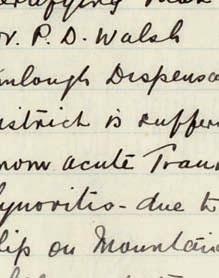 r. P. D. Walsh
nlough Dispensa
istrict is suffer
rom acute Trau
ynovitis - due to
lip on Mountain